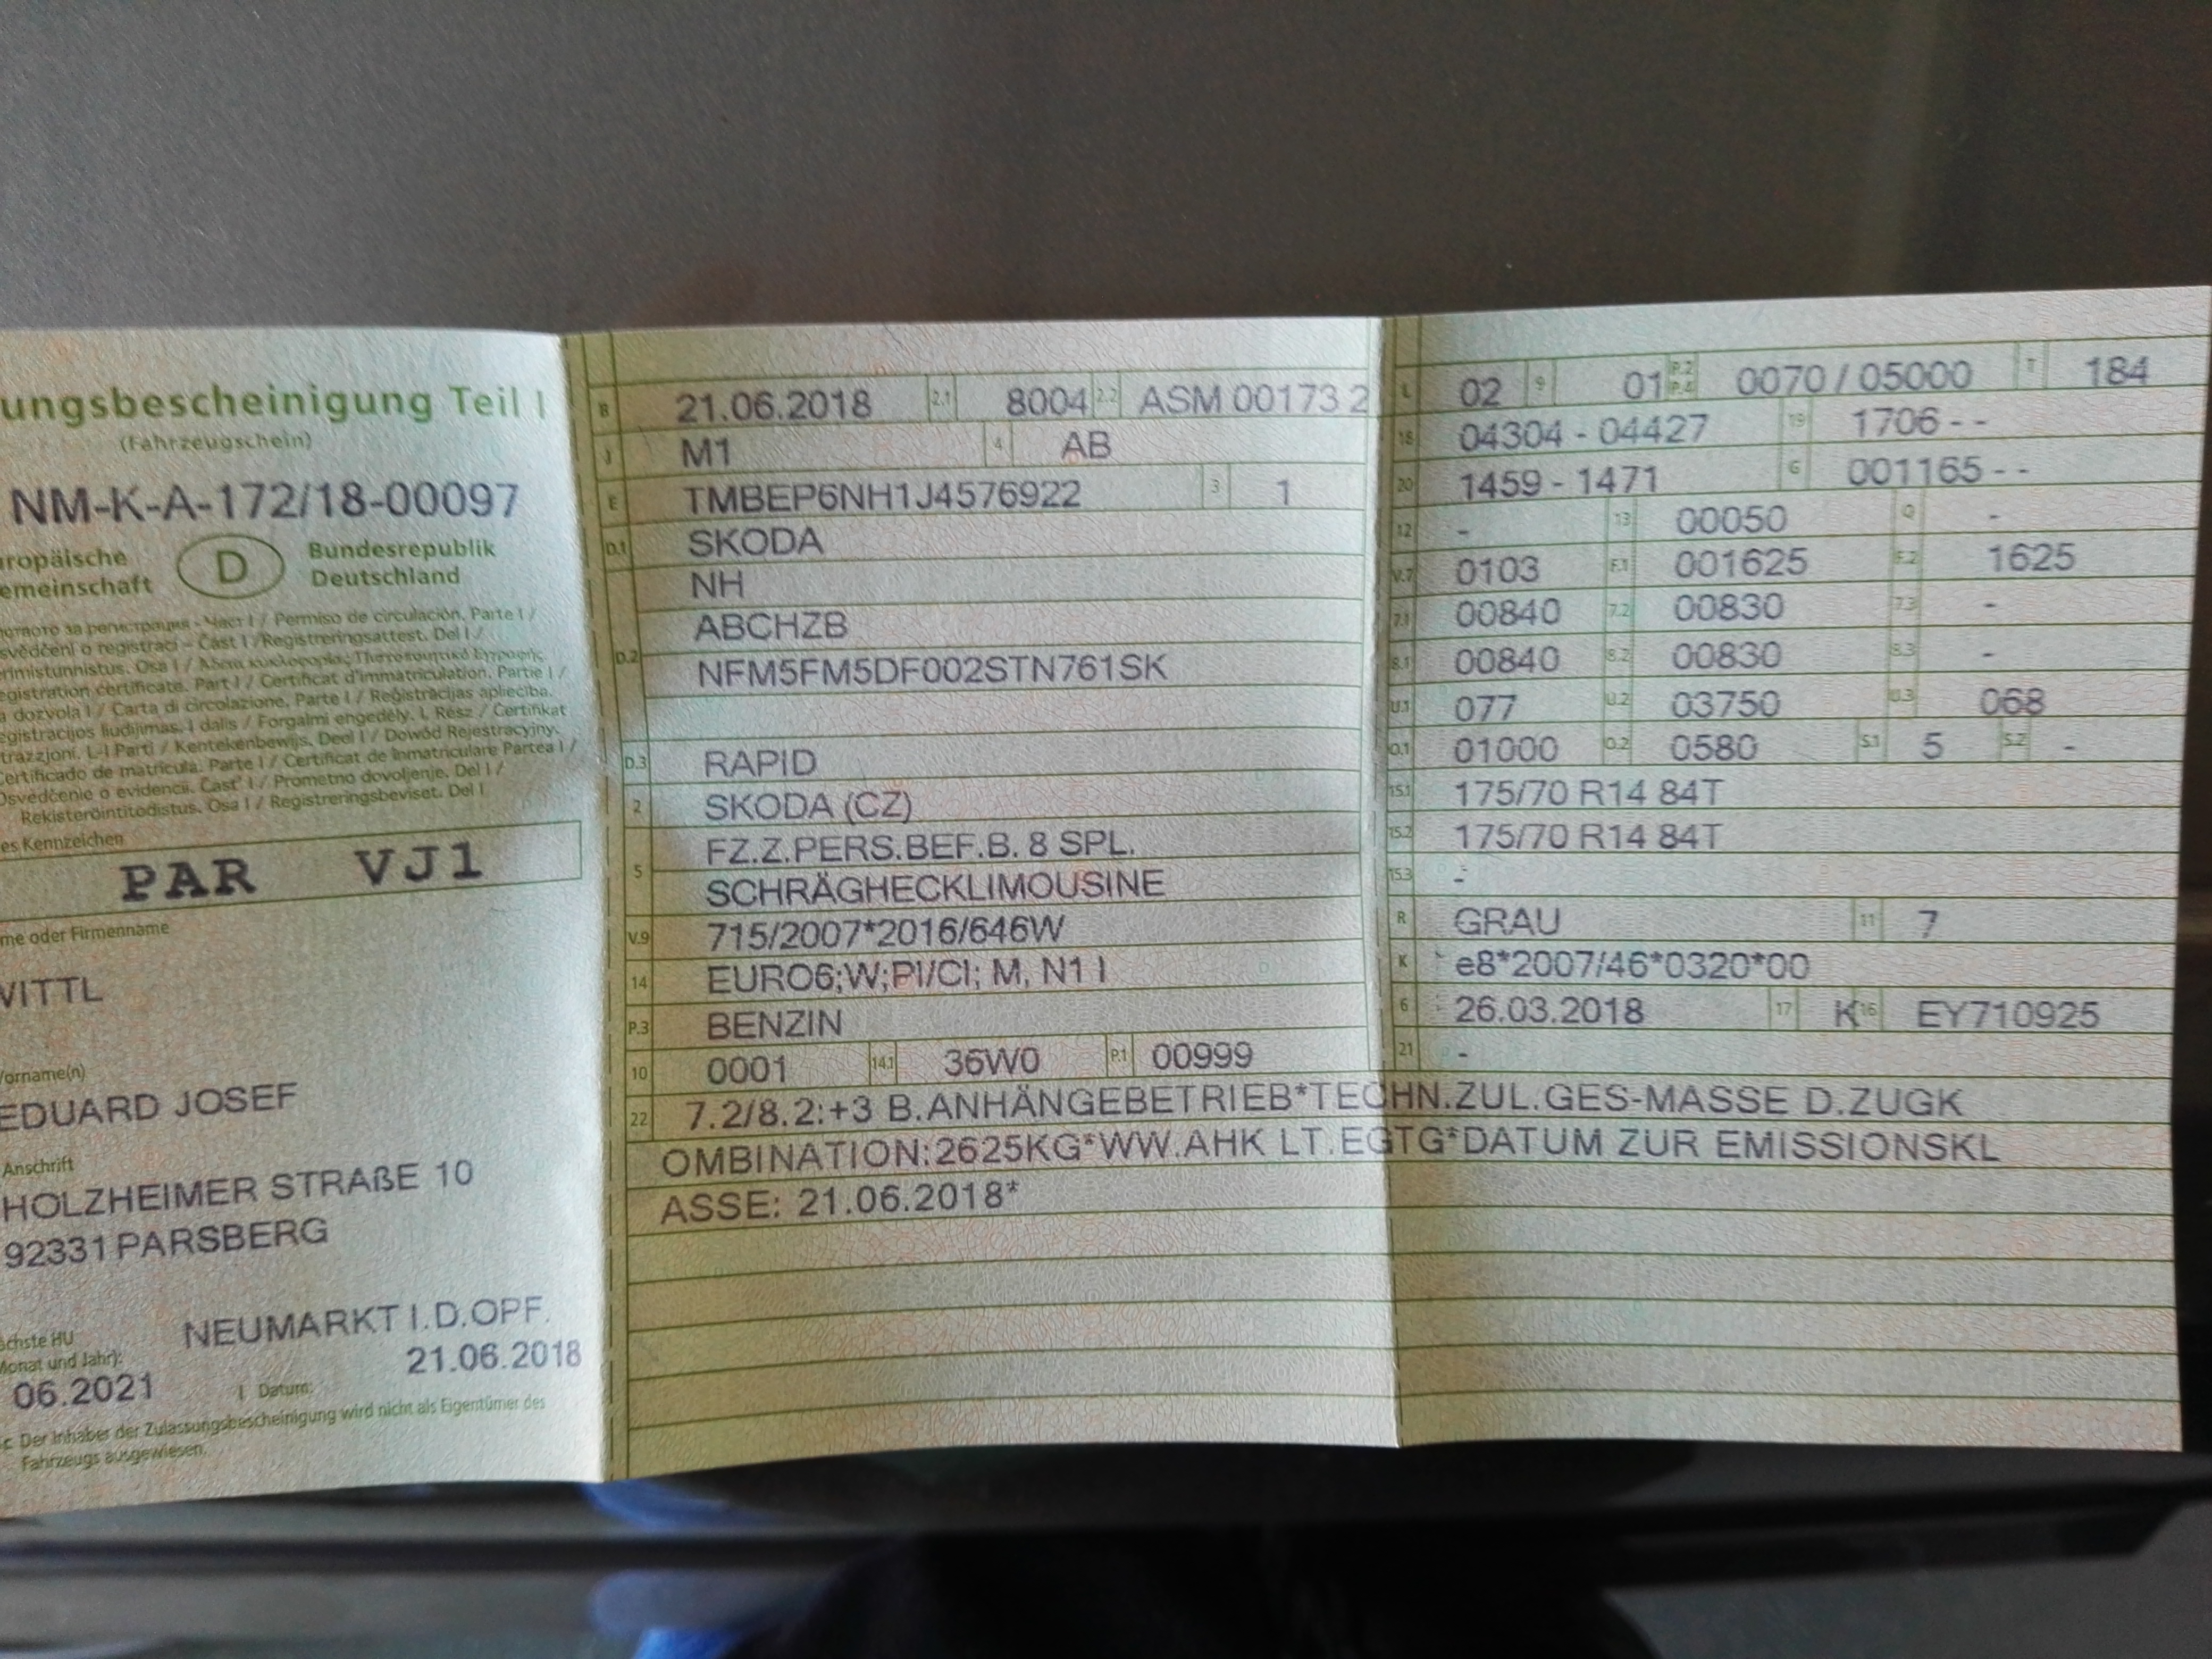 ungsbescheinigung Teil I
(Fahrzeugschein)
NM-K-A-172/18-00097
ropäische
emeinschaft
D
Bundesrepublik
Deutschland
за регистрация - Част I / Permiso de circulación. Parte I /
svědčení o registraci - Část I / Registreringsattest. Del I /
rimistunnistus. Osa I / Άδεια κυκλοφορίας
egistration certificate. Part I / Certificat d'immatriculation. Partie I /
a dozvola I / Carta di circolazione. Parte I / Reģistrācijas apliecība.
egistracijos liudijimas. I dalis / Forgalmi engedély. I. Rész / Certifikat
trazzjoni. L-I Parti / Kentekenbewijs. Deel I / Dowód Rejestracyjny.
Certificado de matrícula. Parte I / Certificat de înmatriculare Partea I /
Osvedčenie o evidencii. Časť I / Prometno dovoljenje. Del I /
Rekisteröintitodistus. Osa I / Registreringsbeviset. Del I
es Kennzeichen
PAR VJ1
me oder Firmenname
WITTL
Vorname(n)
EDUARD JOSEF
Anschrift
HOLZHEIMER STRAßE 10
92331 PARSBERG
NEUMARKT I.D.OPF.
ächste HU
Monat und Jahr):
21.06.2018
06.2021
Datum:
Der Inhaber der Zulassungsbescheinigung wird nicht als Eigentümer des
Fahrzeugs ausgewiesen.
B 21.06.2018 2.1 8004 2.2 ASM 00173 2
J M1 4 AB
E TMBEP6NH1J4576922 3 1
D.1 SKODA
NH
ABCHZB
D.2 NFM5FM5DF002STN761SK
D.3 RAPID
2 SKODA (CZ)
FZ.Z.PERS.BEF.B. 8 SPL.
5 SCHRÄGHECKLIMOUSINE
V.9 715/2007*2016/646W
14 EURO6;W;PI/CI; M, N1 I
P.3 BENZIN
10 0001 14.1 36W0 P.1 00999
L 02 9 01 P.2 P.4 0070 / 05000 T 184
18 04304 - 04427 19 1706 - -
20 1459 - 1471 G 001165 - -
12 - 13 00050 Q -
V.7 0103 F.1 001625 F.2 1625
7.1 00840 7.2 00830 7.3 -
8.1 00840 8.2 00830 8.3 -
U.1 077 U.2 03750 U.3 068
O.1 01000 O.2 0580 S.1 5 S.2 -
15.1 175/70 R14 84T
15.2 175/70 R14 84T
15.3 -
R GRAU 11 7
K e8*2007/46*0320*00
6 26.03.2018 17 K 16 EY710925
21 -
22 7.2/8.2:+3 B.ANHÄNGEBETRIEB*TECHN.ZUL.GES-MASSE D.ZUGK
OMBINATION:2625KG*WW.AHK LT.EGTG*DATUM ZUR EMISSIONSKL
ASSE: 21.06.2018*